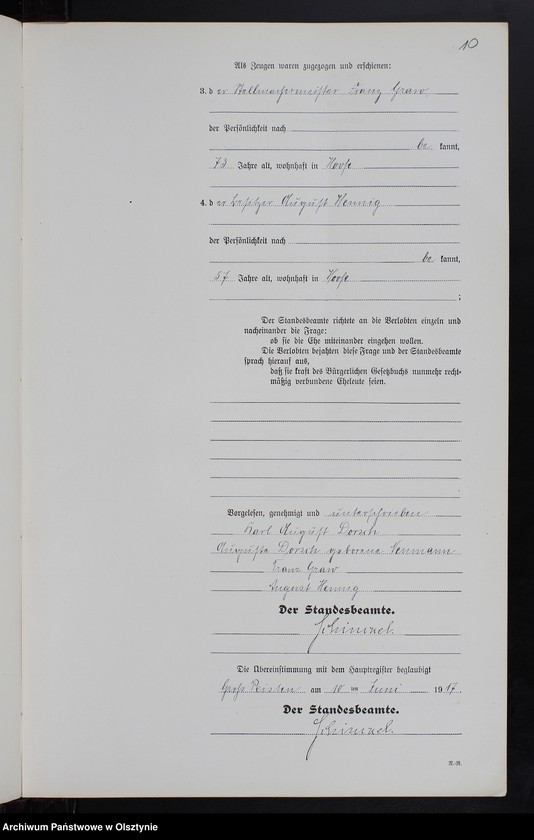 10
Als Zeugen waren zugezogen und erschienen:
3. der Stellmachermeister Franz Graw
der Persönlichkeit nach
be kannt,
73 Jahre alt, wohnhaft in
4. der Besitzer August Hennig
der Persönlichkeit nach
be kannt,
57 Jahre alt, wohnhaft in
;
Der Standesbeamte richtete an die Verlobten einzeln und
nacheinander die Frage:
ob sie die Ehe miteinander eingehen wollen.
Die Verlobten bejahten diese Frage und der Standesbeamte
sprach hierauf aus,
daß sie kraft des Bürgerlichen Gesetzbuchs nunmehr recht-
mäßig verbundene Eheleute seien.
Vorgelesen, genehmigt und unterschrieben
Karl August Dorsch
Auguste Dorsch geborene Neumann
Franz Graw
August Hennig
Der Standesbeamte.
Schimael.
Die Übereinstimmung mit dem Hauptregister beglaubigt
Groß Peisten am 10 ten Juni 1917.
Der Standesbeamte.
Schimael.
R.-R.
Archiwum Państwowe w Olsztynie